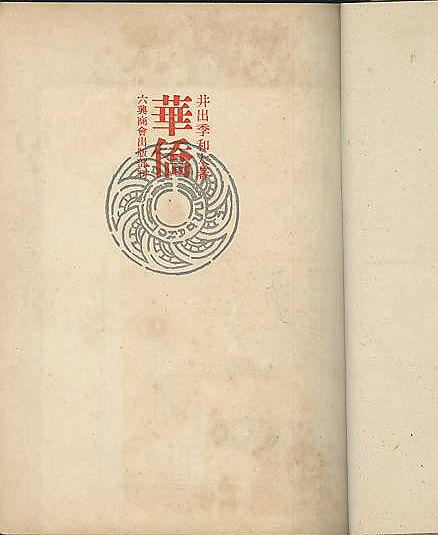 井出季和太著
華僑
六興商會出版部刊